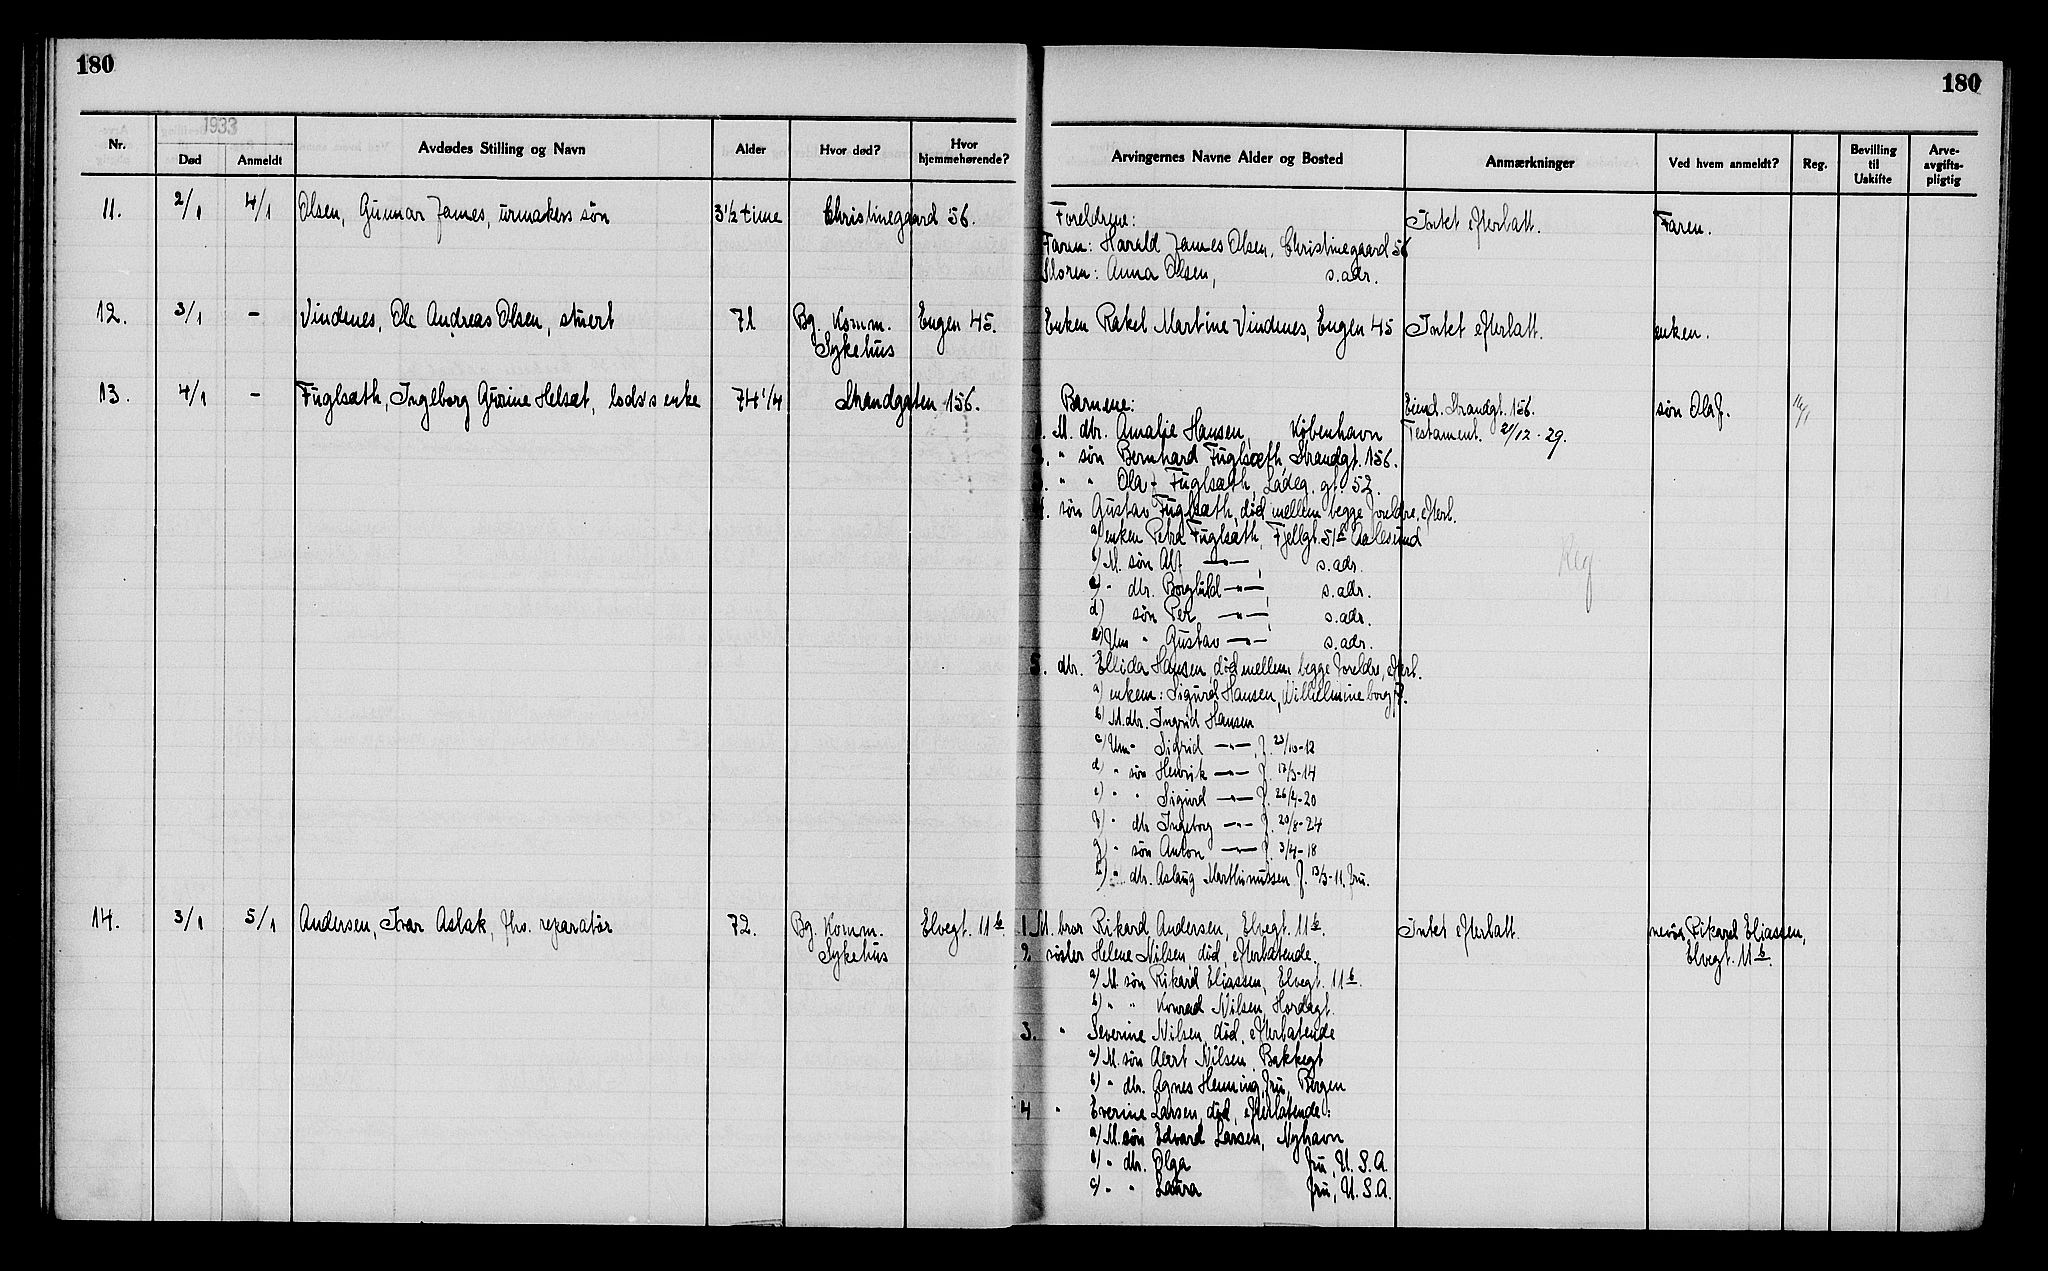 180
180
1933
Nr. Død Anmeldt Avdødes Stilling og Navn Alder Hvor død? Hvor hjemmehørende? Arvingernes Navne Alder og Bosted Anmærkninger Ved hvem anmeldt? Reg. Bevilling til Uskifte Arve-avgifts-pligtig
11. 2/1 4/1 Olsen, Gunnar James, urmakers søn 3½ time Christinegaard 56. Foreldrene: Intet efterlatt. Faren.
Faren: Harald James Olsen, Christinegaard 56
Moren: Anna Olsen, s. adr.
12. 3/1 - Vindenes, Ole Andreas Olsen, stuert 71 Bg. Komm. Engen 45. Enken Rakel Martine Vindenes, Engen 45 Intet efterlatt. enken.
Sykehus
13. 4/1 - Fuglsæth, Ingeborg Gurine Helset, lods's enke 74 1/4 Strandgaten 156. Barnene: Eiend. Strandgt. 156. søn Olaf.
M. dtr. Amalie Hansen, København Testament. 2/12-29.
" søn Bernhard Fuglsæth, Strandgt. 156.
" " Olaf Fuglsæth, Ladeg. gt. 52.
søn Gustav Fuglsæth, død mellem begge foreldre, efterl.
a) enken Petra Fuglsæth, Fjellgt. 51b Aalesund
b) M. søn Alf —"—, s. adr.
c) " dtr. Borghild —"—, s. adr.
d) søn Per —"—, s. adr.
e) Um " Gustav —"— s. adr.
Reg
5. dtr. Ellida Hansen, død mellem begge foreldre, efterl.
a) enkem: Sigurd Hansen, Wilhelmineborg
b) M. dtr. Ingrid Hansen
c) Um " Sigrid —"—, f. 23/10-12
d) " søn Henrik —"— f. 17/3-14
e) " " Sigurd —"— f. 26/4-20
f) " dtr Ingeborg —"— f. 20/8-24
g) " søn Anton —"— f. 3/4-18
h) " dtr. Aslaug Marthinussen f. 13/3-11, fru.
14. 3/1 5/1 Andersen, Ivar Aslak, fhv. reparatør 72. Bg. Komm. Elvegt. 11b. 1. M. bror Rikard Andersen, Elvegt. 11b. Intet efterlatt. nevø Rikard Eliassen,
Sykehus 2 søster Helene Nilsen død, efterlatende. Elvegt. 11b.
a) M søn Rikard Eliassen, Elvegt. 11b.
b) " " Konrad Nilsen, Hordagt.
3. " Severine Nilsen, død, efterlatende
a) M. søn Alert Nilsen, Bakkegt
b) " dtr. Agnes Henning, fru, Bergen
4 " Everine Larsen, død, efterlatende:
a) M. søn Edvard Larsen, Nyhavn
b) " dtr. Olga fru, U.S.A.
c) " " Laura fru, U.S.A.